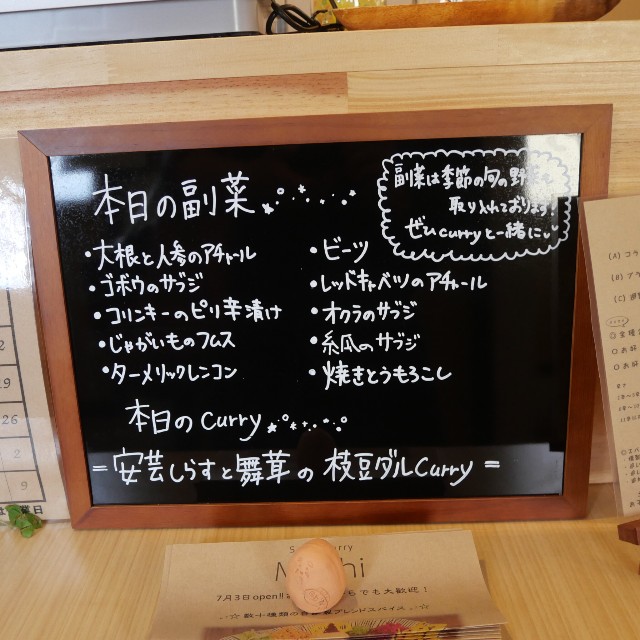 本日の副菜
副菜は季節の旬の野菜を
取り入れております!
ぜひcurryと一緒に
・大根と人参のアチャール
・ゴボウのサブジ
・コリンキーのピリ辛漬け
・じゃがいものフムス
・ターメリックレンコン
・ビーツ
・レッドキャベツのアチャール
・オクラのサブジ
・糸瓜のサブジ
・焼きとうもろこし
本日のcurry
=安芸しらすと舞茸の枝豆ダルcurry=
7月3日open!!
でも大歓迎!
(A)
(B)
(C)
29
26
9